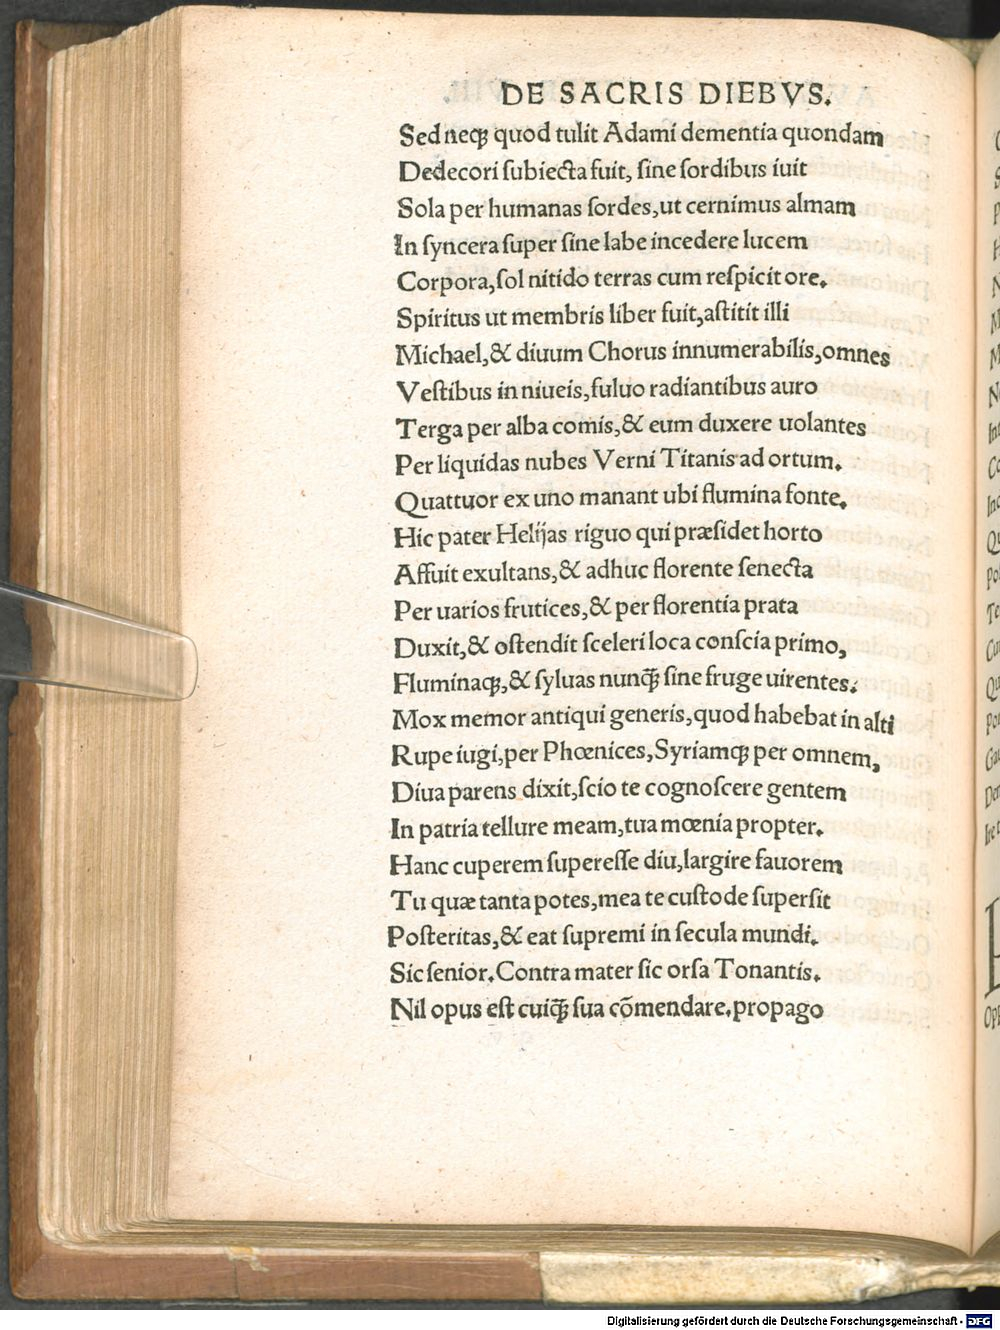 DE SACRIS DIEBVS.
Sed neqꝫ quod tulit Adami dementia quondam
Dedecori ſubiecta fuit, ſine ſordibus iuit
Sola per humanas ſordes,ut cernimus almam
In ſyncera ſuper ſine labe incedere lucem
Corpora,ſol nitido terras cum reſpicit ore.
Spiritus ut membris liber fuit,aſtitit illi
Michael,& diuum Chorus innumerabilis,omnes
Veſtibus in niueis,fuluo radiantibus auro
Terga per alba comis,& eum duxere uolantes
Per liquidas nubes Verni Titanis ad ortum.
Quattuor ex uno manant ubi flumina fonte.
Hic pater Helijas riguo qui præſidet horto
Affuit exultans,& adhuc florente ſenecta
Per uarios frutices,& per florentia prata
Duxit,& oſtendit ſceleri loca conſcia primo,
Fluminaqꝫ,& ſyluas nunq̃ ſine fruge uirentes.
Mox memor antiqui generis,quod habebat in alti
Rupe iugi,per Phœnices,Syriamqꝫ per omnem,
Diua parens dixit,ſcio te cognoſcere gentem
In patria tellure meam,tua mœnia propter.
Hanc cuperem ſupereſſe diu,largire fauorem
Tu quæ tanta potes,mea te cuſtode ſuperſit
Poſteritas,& eat ſupremi in ſecula mundi.
Sic ſenior.Contra mater ſic orſa Tonantis.
Nil opus eſt cuiq̃ ſua cõmendare.propago
Digitalisierung gefördert durch die Deutsche Forschungsgemeinschaft - DFG